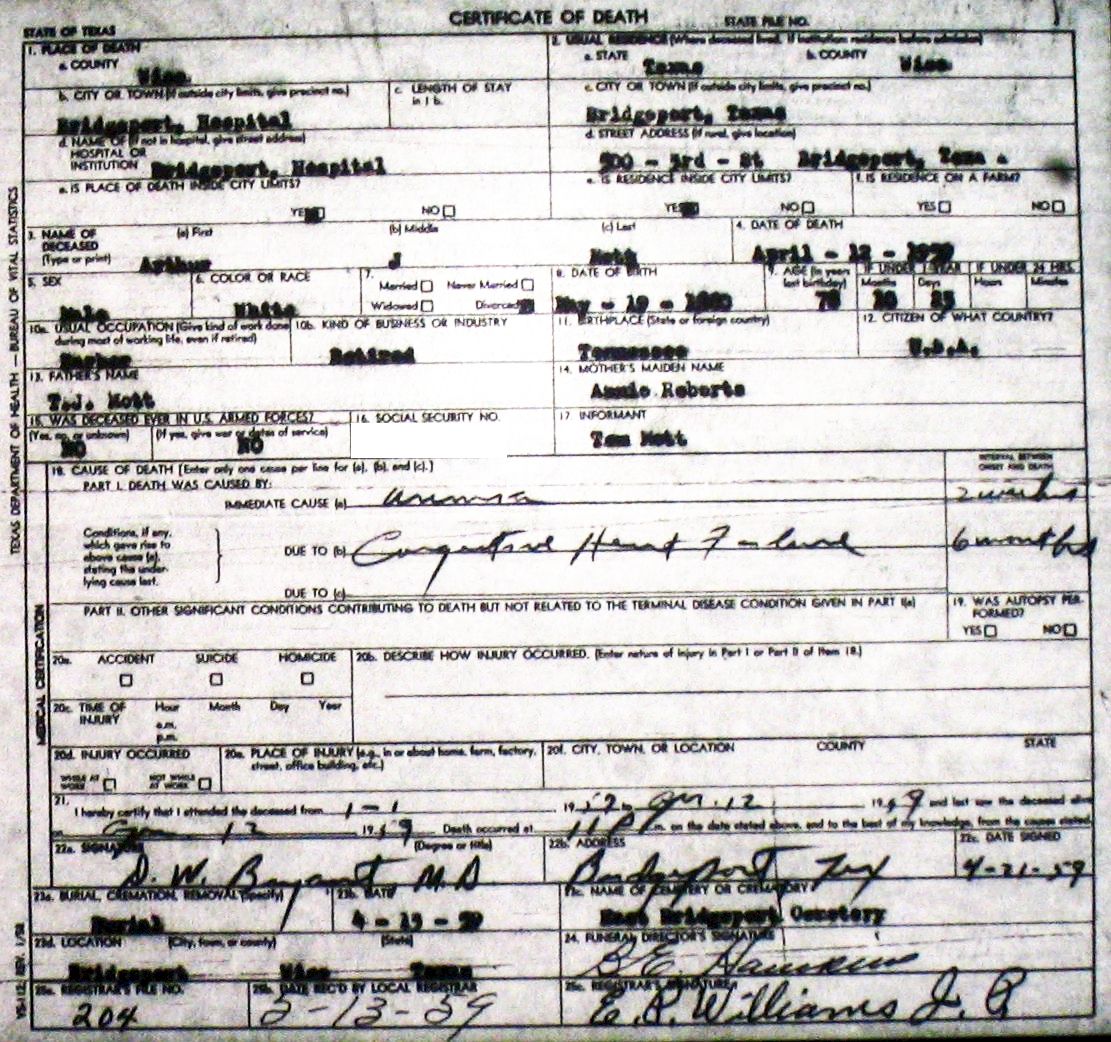 CERTIFICATE OF DEATH STATE FILE NO.
STATE OF TEXAS
1. PLACE OF DEATH
a. COUNTY
Wise
2. USUAL RESIDENCE (Where deceased lived. If institution: residence before admission)
a. STATE
Texas
b. COUNTY
Wise
b. CITY OR TOWN (If outside city limits, give precinct no.)
Bridgeport, Hospital
c. LENGTH OF STAY
in 1 b.
c. CITY OR TOWN (If outside city limits, give precinct no.)
Bridgeport, Texas
d. NAME OF (If not in hospital, give street address)
HOSPITAL OR
INSTITUTION Bridgeport, Hospital
d. STREET ADDRESS (If rural, give location)
500 - 3rd - St Bridgeport, Texa
e. IS PLACE OF DEATH INSIDE CITY LIMITS?
YES NO
e. IS RESIDENCE INSIDE CITY LIMITS?
YES NO
f. IS RESIDENCE ON A FARM?
YES NO
3. NAME OF
DECEASED
(Type or print)
(a) First
Arthur
(b) Middle
J
(c) Last
Mott
4. DATE OF DEATH
April - 12 - 1959
5. SEX
Male
6. COLOR OR RACE
White
7.
Married Never Married
Widowed Divorced
8. DATE OF BIRTH
May - 19 - 1880
9. AGE (In years
last birthday)
78
IF UNDER 1 YEAR
Months Days
10
IF UNDER 24 HRS.
Hours Minutes
10a. USUAL OCCUPATION (Give kind of work done
during most of working life, even if retired)
Barber
10b. KIND OF BUSINESS OR INDUSTRY
Retired
11. BIRTHPLACE (State or foreign country)
Tennessee
12. CITIZEN OF WHAT COUNTRY?
U.S.A.
13. FATHER'S NAME
T.J. Mott
14. MOTHER'S MAIDEN NAME
Annie Roberts
15. WAS DECEASED EVER IN U.S. ARMED FORCES?
(Yes, no, or unknown)
NO
(If yes, give war or dates of service)
NO
16. SOCIAL SECURITY NO.
17 INFORMANT
Tom Mott
18. CAUSE OF DEATH [Enter only one cause per line for (a), (b), and (c).]
INTERVAL BETWEEN
ONSET AND DEATH
PART I. DEATH WAS CAUSED BY:
IMMEDIATE CAUSE (a) 2 weeks
Conditions, if any,
which gave rise to
above cause (a),
stating the under-
lying cause last.
DUE TO (b) Congestive Heart Failure 6 months
DUE TO (c)
PART II. OTHER SIGNIFICANT CONDITIONS CONTRIBUTING TO DEATH BUT NOT RELATED TO THE TERMINAL DISEASE CONDITION GIVEN IN PART I(a)
19. WAS AUTOPSY PER-
FORMED?
YES NO
20a. ACCIDENT SUICIDE HOMICIDE
20b. DESCRIBE HOW INJURY OCCURRED. (Enter nature of injury in Part I or Part II of Item 18.)
20c. TIME OF
INJURY
Hour Month Day Year
a.m.
p.m.
20d. INJURY OCCURRED
WHILE AT
WORK
NOT WHILE
AT WORK
20e. PLACE OF INJURY (e.g., in or about home, farm, factory,
street, office building, etc.)
20f. CITY, TOWN, OR LOCATION COUNTY STATE
21.
I hereby certify that I attended the deceased from 1-1 19 59 to 12 19 59 and last saw the deceased alive
on 12 19 59 Death occurred at 11 P m. on the date stated above, and to the best of my knowledge, from the causes stated.
22a. SIGNATURE (Degree or title)
D. W. Bryant M.D
22b. ADDRESS
Bridgeport Tex
22c. DATE SIGNED
4-21-59
23a. BURIAL, CREMATION, REMOVAL (Specify)
Burial
23b. DATE
4 - 13 - 59
23c. NAME OF CEMETERY OR CREMATORY
East Bridgeport Cemetery
23d. LOCATION (City, town, or county) (State)
Bridgeport Wise Texas
24. FUNERAL DIRECTOR'S SIGNATURE
B.E. Hawkins
25a. REGISTRAR'S FILE NO.
204
25b. DATE REC'D BY LOCAL REGISTRAR
5-13-59
25c. REGISTRAR'S SIGNATURE
E. R. Williams J. P.
TEXAS DEPARTMENT OF HEALTH — BUREAU OF VITAL STATISTICS
MEDICAL CERTIFICATION
VS-112 REV. 1/58